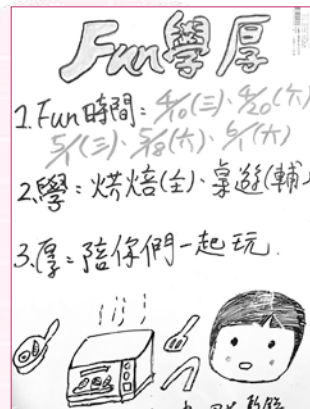 Fun學厚
1.Fun時間：4/10(三)、4/20(六)
5/1(三)、5/18(六)、6/1(六)
2.學：烘焙(主)、桌遊(輔)
3.厚：陪你們一起玩.